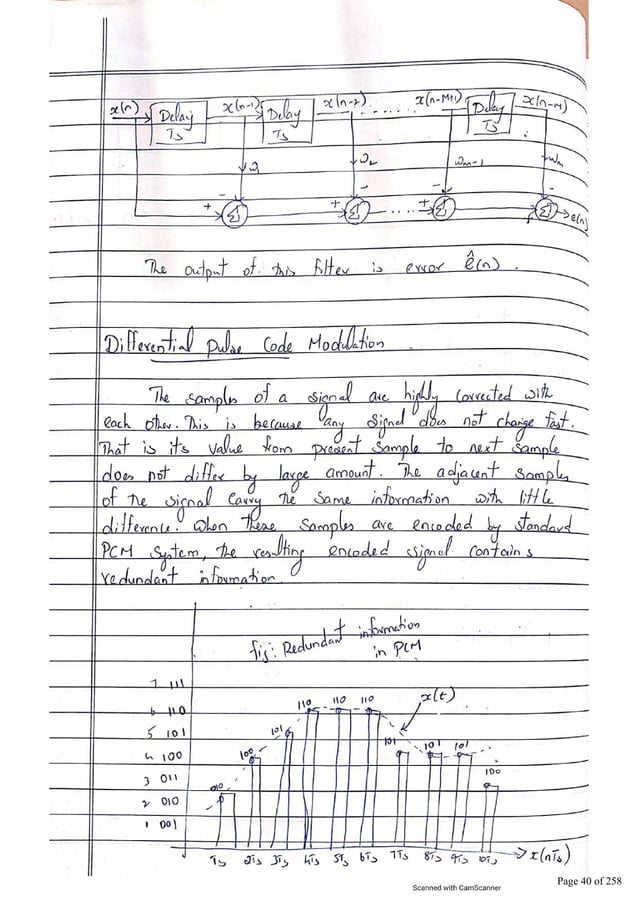 x(n) Delay Ts x(n-1) Delay Ts x(n-2) x(n-M+1) Delay Ts x(n-M)
ω₁ ω₂ ωm-1 ωm
- - - -
+ Σ + Σ + Σ Σ e(n)
The output of this filter is error ê(n).
Differential Pulse Code Modulation
The samples of a signal are highly corrected with
each other. This is because any signal does not change fast.
That is it's value from present sample to next sample
does not differ by large amount. The adjacent samples
of the signal carry the same information with little
difference. When these samples are encoded by standard
PCM system, the resulting encoded signal contains
redundant information
fig: Redundant information
in PCM
7 111
6 110
5 101
4 100
3 011
2 010
1 001
010 100 101 110 110 110 101 101 101 100
x(t)
Ts 2Ts 3Ts 4Ts 5Ts 6Ts 7Ts 8Ts 9Ts 10Ts x(nTs)
Page 40 of 258
Scanned with CamScanner